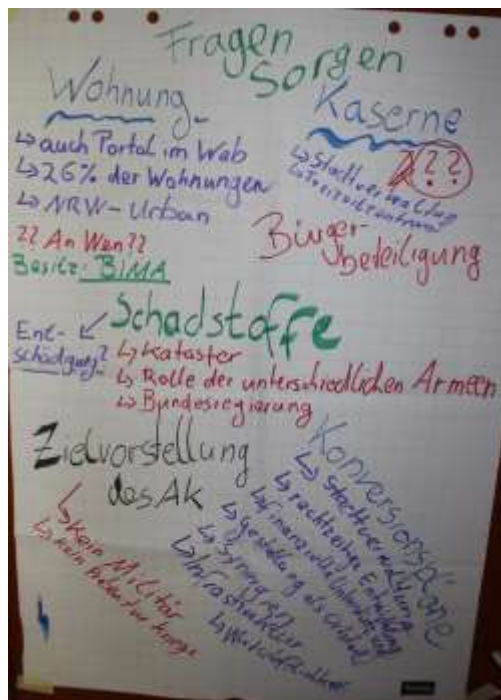 Fragen
Sorgen
Wohnung
↳ auch Portal im Web
↳ 26% der Wohnungen
↳ NRW-Urban
?? An Wen??
Besitz: BIMA
Kaserne
↳ Stadtverwaltung
???
Bürger-
beteiligung
Schadstoffe
Ent-
schädigung?
↳ Kataster
↳ Rolle der unterschiedlichen Armeen
↳ Bundesregierung
Zielvorstellung
des Ak
↳ Kein Militär
↳ Kein
Konversionspläne
↳ Stadtverwaltung
↳ rechtzeitige Entwicklung
↳ finanzielle
↳ gestaltung als
↳ Synergien
↳ Infrastruktur